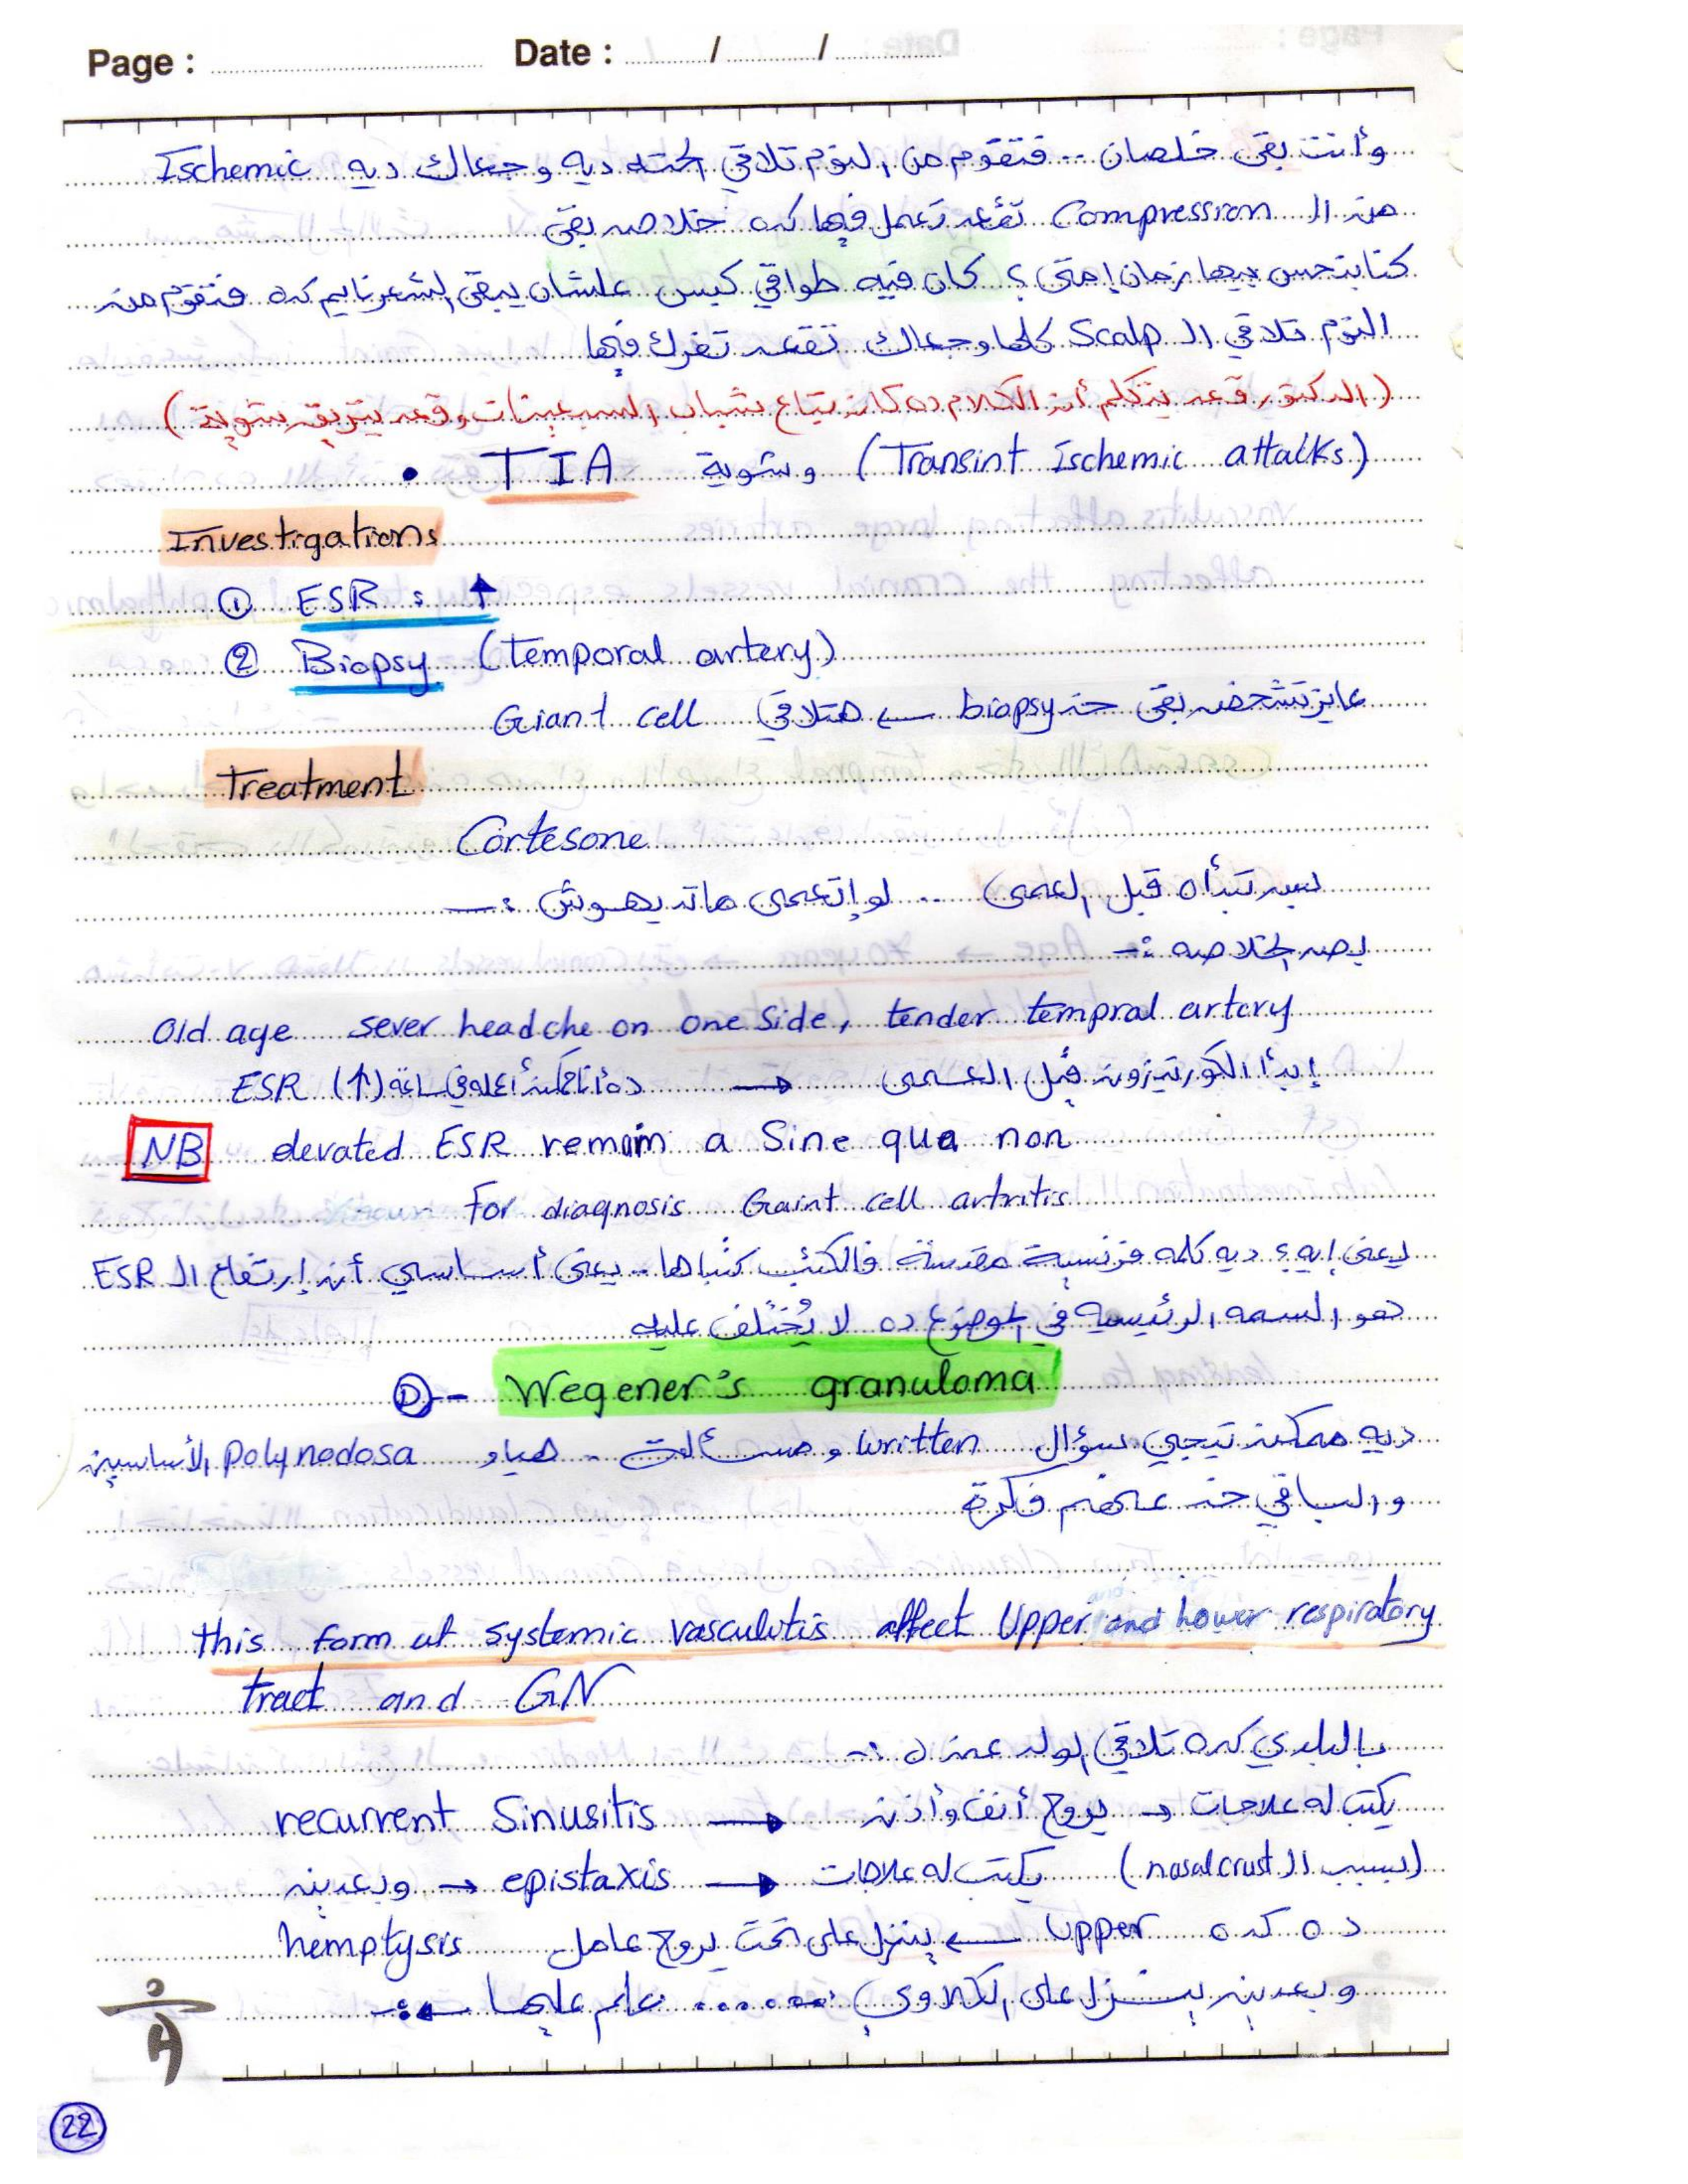 Page : Date : / /
وأنت بقى خلصان .. فتقوم من النوم تلاقي الحته ديه وجعاك ديه Ischemic
من ال Compression تقعد تعمل فيها كده خلاص بقى
كنا بنحس بيها زمان إمتى؟ كان فيه طواقي كبس علشان يبقى الشعر نايم كده فتقوم من
النوم تلاقي ال Scalp كلها وجعاك تقعد تفرك فيها
(الدكتور قعد يتكلم أن الكلام ده كان بتاع شباب السبعينات وقعد يتريق شوية)
• TIA وشوية (Transint Ischemic attalks)
Investigations
① ESR : ↑
② Biopsy (temporal artery)
عايز تشخصه بقى خد biopsy ← هتلاقي Giant cell
Treatment
Cortesone
بس تبدأه قبل العمى .. لو إتعمى ماتديهوش :-
بص الخلاصه :-
Old age sever headche on one side, tender tempral artery
إبدأ الكورتيزون قبل العمى → ESR (↑)
NB elevated ESR remain a Sine qua non
For diagnosis Gaint cell artritis
يعنى إيه؟ ديه كلمه فرنسية مقدسة فالكتب كتباها .. يعنى أساسي أن إرتفاع ال ESR
هو السمه الرئيسيه في الموضوع ده لا يُختلف عليه
D - Wegener's granuloma
ديه ممكن تيجي سؤال written و .. هيا و polynodosa الأساسين
والباقي خد عنهم فكرة
this form of systemic vasculitis affect Upper and lower respiratory
tract and GN
بالبلدي كده تلاقي الولد عنده :-
recurrent Sinusitis → يروح أنف وأذن → يكتب له علاجات
(بسبب ال nasal crust) يكتب له علاجات ← epistaxis ← وبعدين
ده كده Upper ← ينزل على تحت يروح عامل hemptysis
وبعدين ينزل على الكلاوي ...... علم عليها ←:-
22